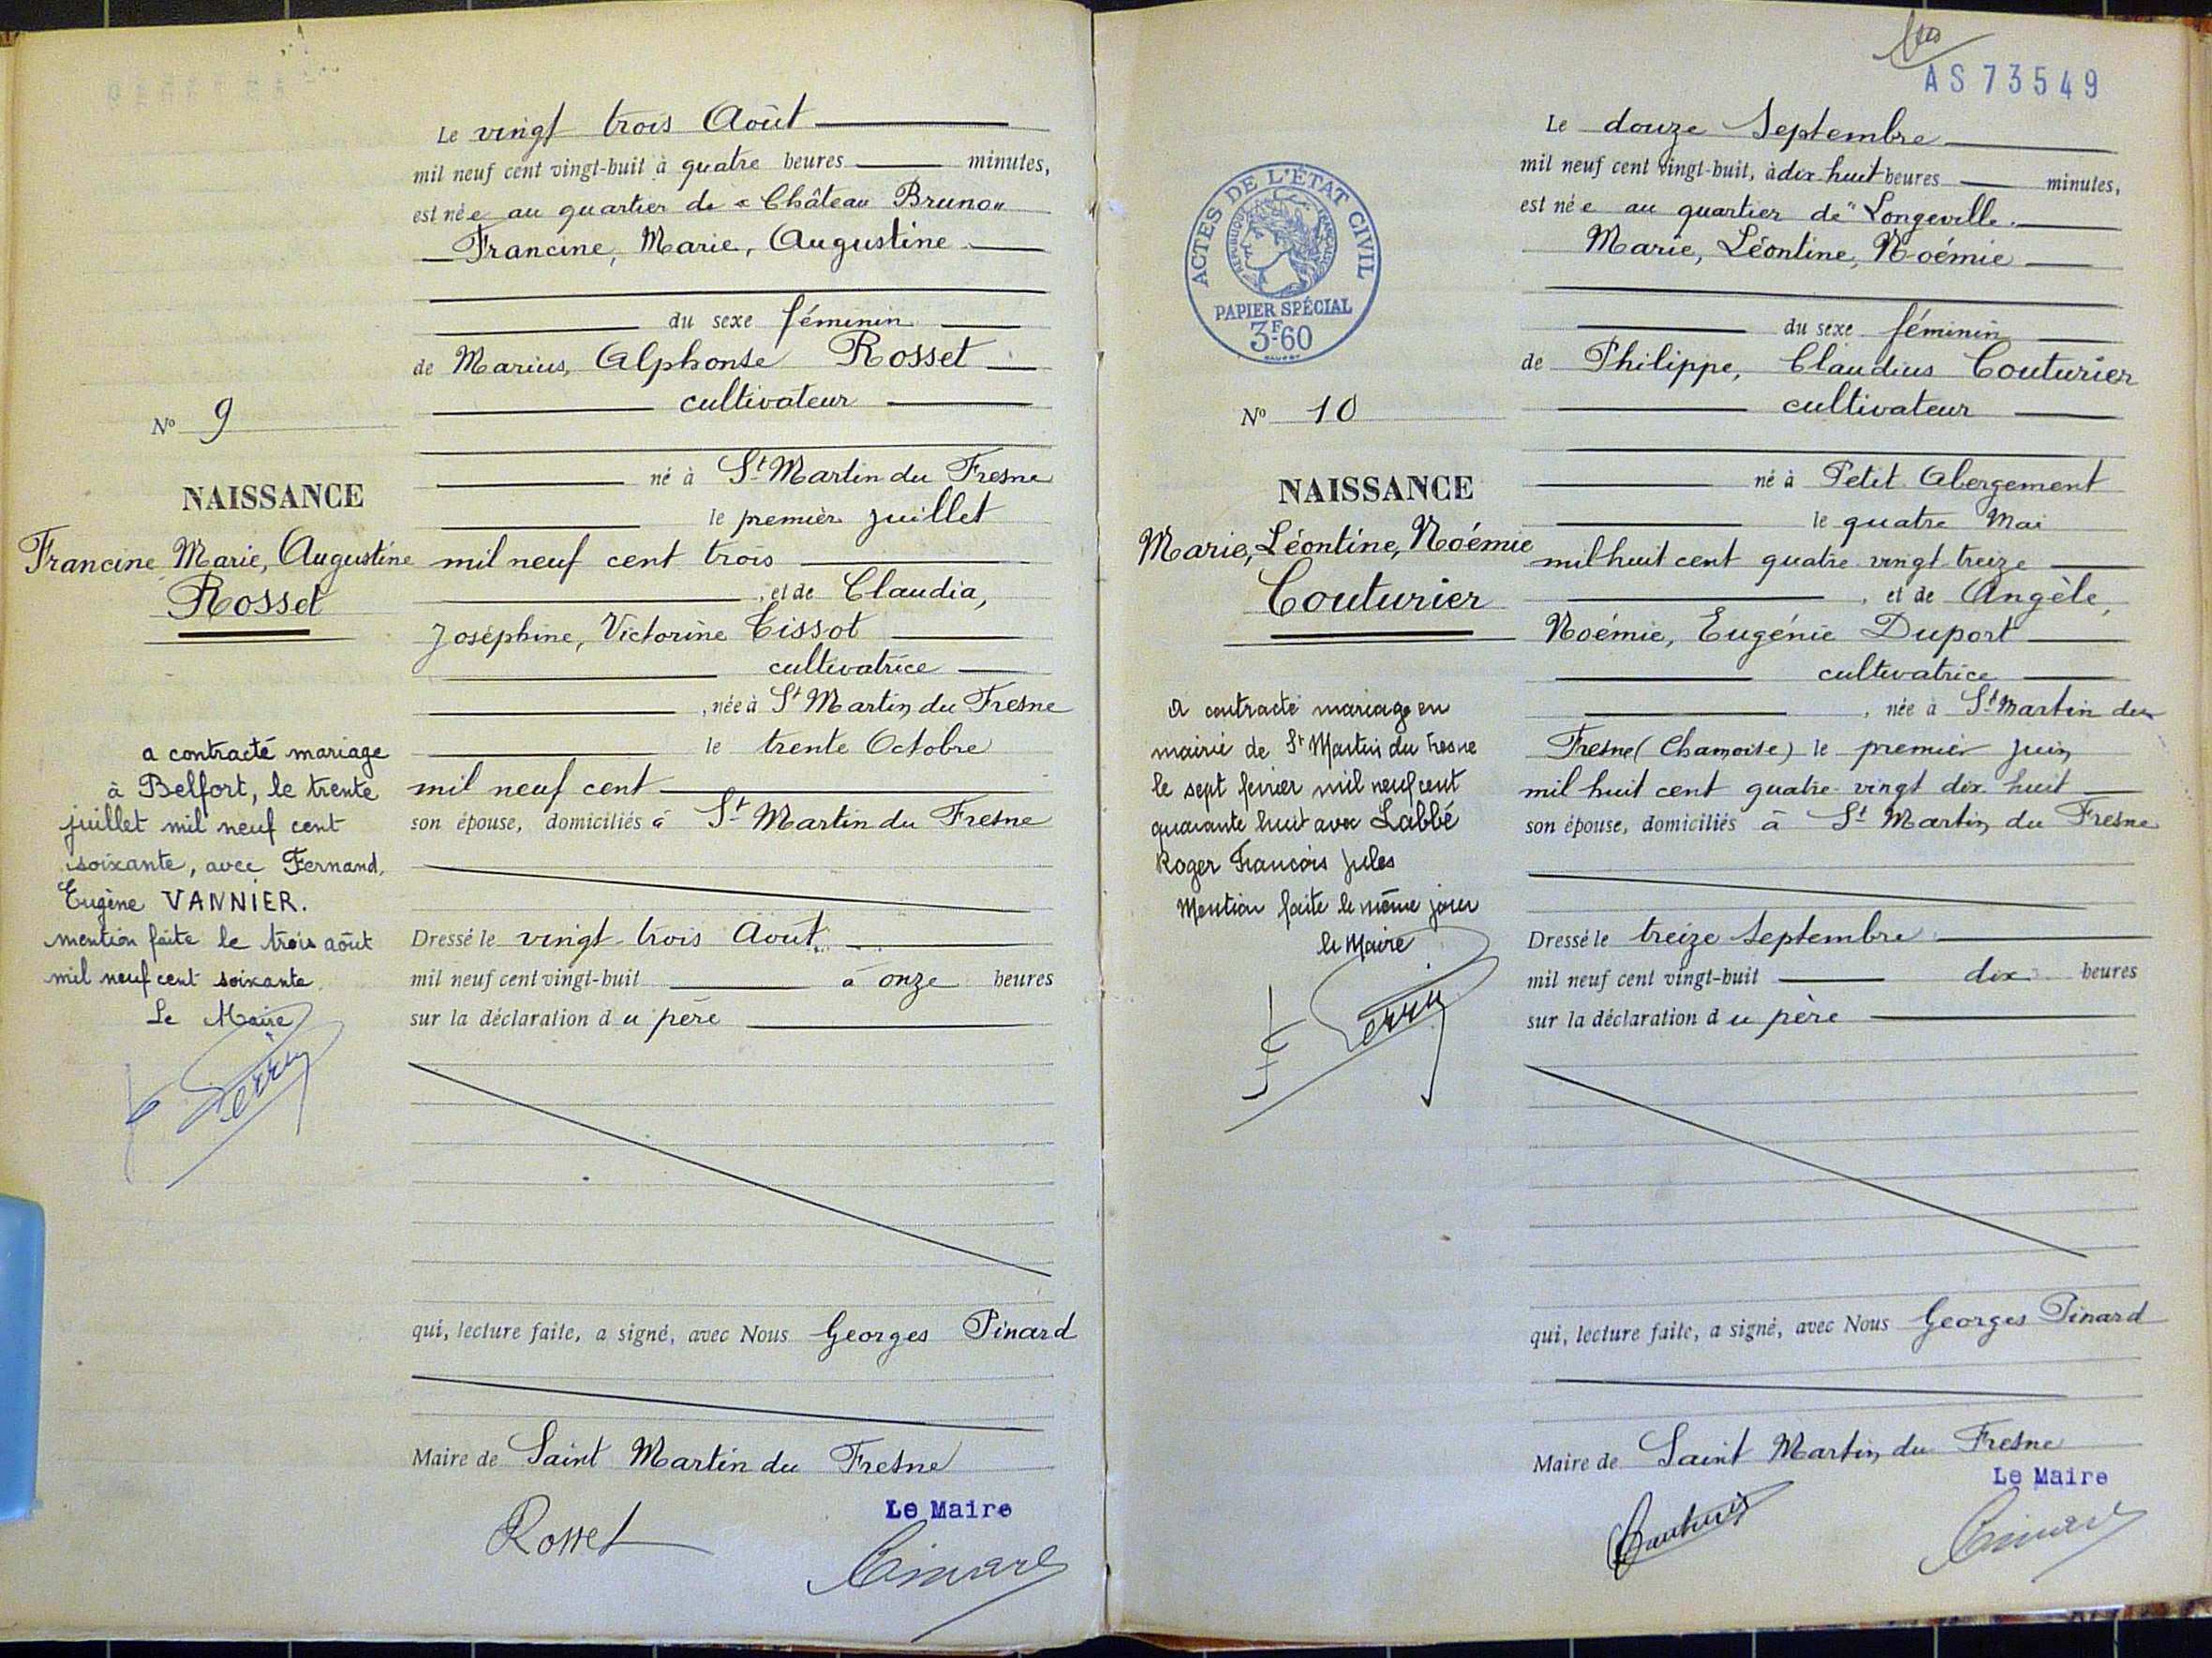 Le vingt trois Août
mil neuf cent vingt-huit à quatre heures minutes,
est née au quartier de « Château Bruno »
Francine, Marie, Augustine
du sexe féminin
de Marius, Alphonse Rosset
cultivateur
N° 9
né à St Martin du Fresne
NAISSANCE
le premier juillet
Francine, Marie, Augustine
Rosset
mil neuf cent trois
, et de Claudia,
Joséphine, Victorine Tissot
cultivatrice
, née à St Martin du Fresne
le trente Octobre
mil neuf cent
son épouse, domiciliés à St Martin du Fresne
a contracté mariage
à Belfort, le trente
juillet mil neuf cent
soixante, avec Fernand,
Eugène VANNIER.
mention faite le trois août
mil neuf cent soixante.
Le Maire
Dressé le vingt-trois Août
mil neuf cent vingt-huit à onze heures
sur la déclaration du père
qui, lecture faite, a signé, avec Nous Georges Pinard
Maire de Saint Martin du Fresne
Rosset
Le Maire
AS 73549
Le douze Septembre
mil neuf cent vingt-huit, à dix-huit heures minutes,
est née au quartier de "Longeville.
Marie, Léontine, Noémie
ACTES DE L'ÉTAT CIVIL
RÉPUBLIQUE FRANÇAISE
PAPIER SPÉCIAL
3F60
du sexe féminin
de Philippe, Claudius Couturier
cultivateur
N° 10
né à Petit Abergement
NAISSANCE
le quatre Mai
Marie, Léontine, Noémie
Couturier
mil huit cent quatre-vingt-treize
, et de Angèle,
Noémie, Eugénie Duport
cultivatrice
, née à St Martin du
Fresne (Chamoise) le premier Juin
mil huit cent quatre-vingt dix-huit
son épouse, domiciliés à St Martin du Fresne
A contracté mariage en
mairie de St Martin du Fresne
le sept fevrier mil neuf cent
quarante huit avec Labbé
Roger François Jules
Mention faite le même jour
le Maire
Dressé le treize Septembre
mil neuf cent vingt-huit dix heures
sur la déclaration du père
qui, lecture faite, a signé, avec Nous Georges Pinard
Maire de Saint Martin du Fresne
Le Maire